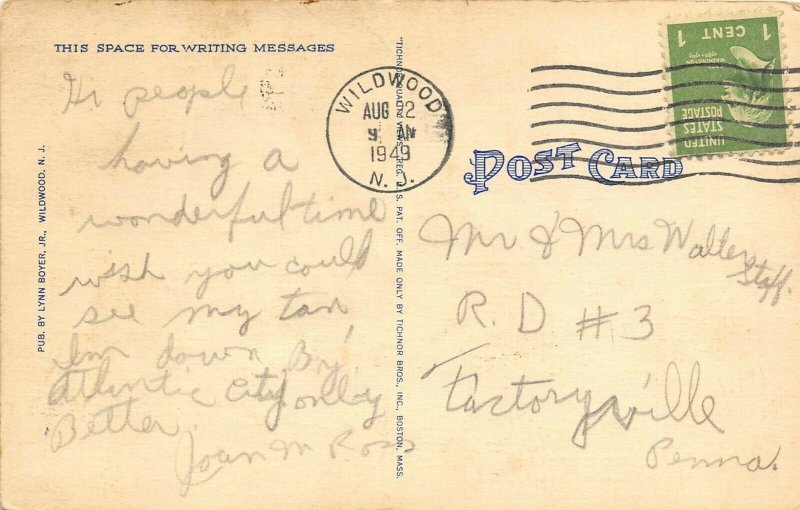 THIS SPACE FOR WRITING MESSAGES
Hi people
having a
wonderful time
wish you could
see my tan,
Im down By
Atlantic City, only
Better.
Joan M Ross
PUB. BY LYNN BOYER, JR., WILDWOOD, N. J.
"TICHNOR QUALITY VIEWS," REG. U. S. PAT. OFF. MADE ONLY BY TICHNOR BROS., INC., BOSTON, MASS.
WILDWOOD
AUG 2
9 AM
1949
N. J.
POST CARD
UNITED
STATES
POSTAGE
WASHINGTON
1789-1797
1 CENT 1
Mr & Mrs Walter
Staff.
R. D #3
Factoryville
Penna.